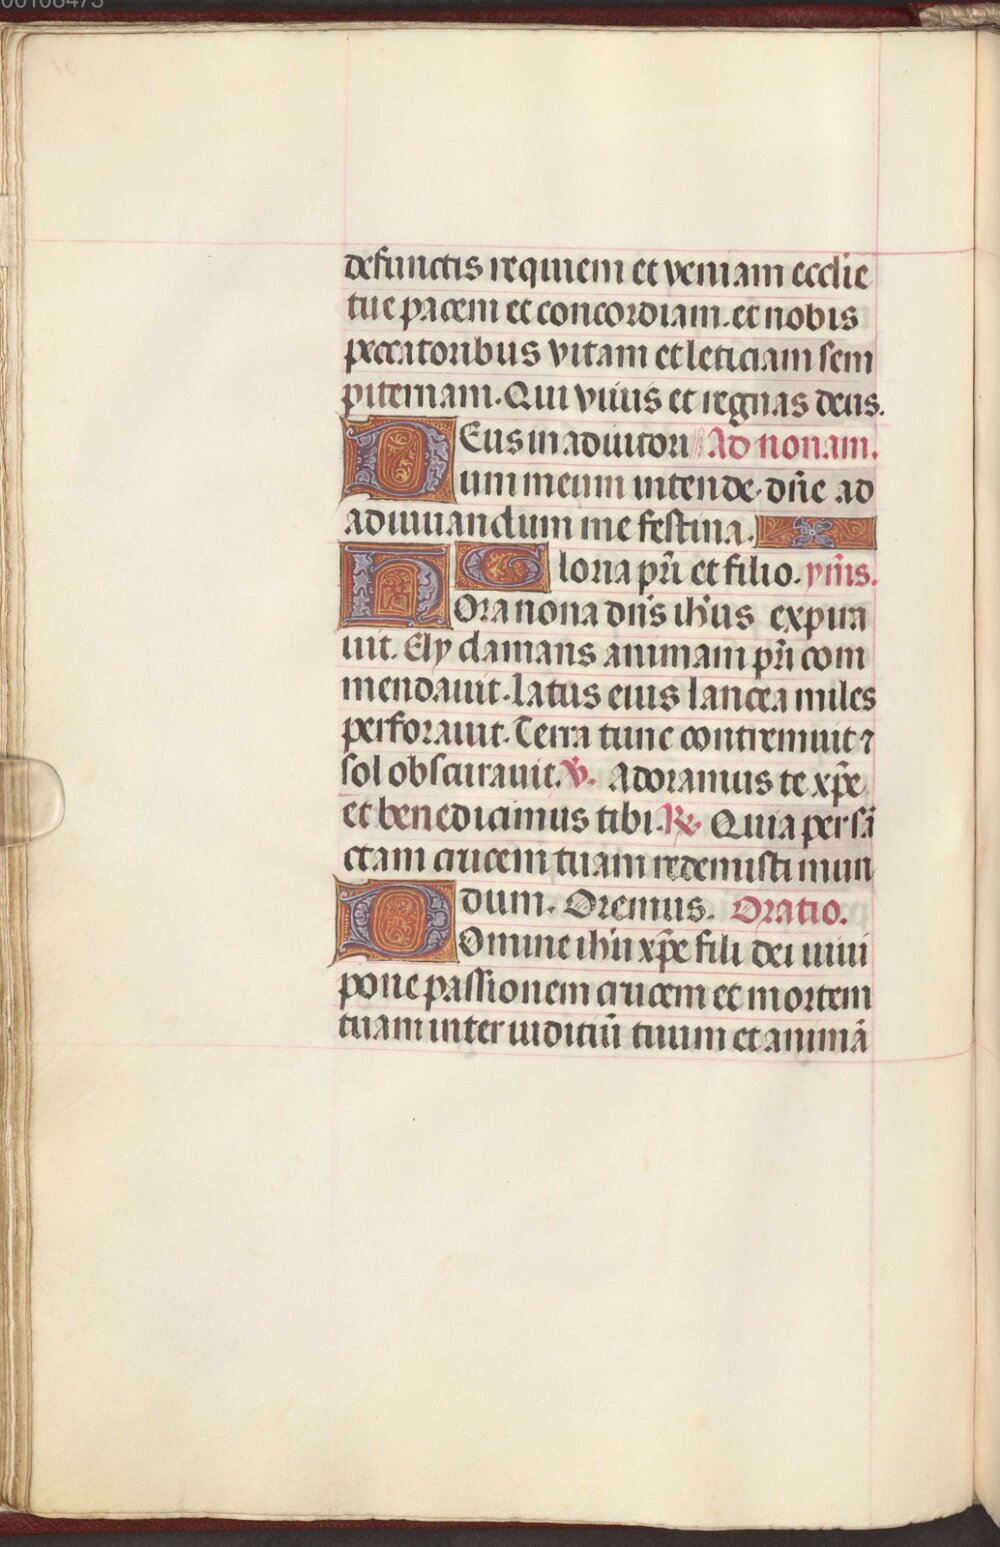 00108473
defunctis requiem et veniam ecclie
tue pacem et concordiam. et nobis
peccatoribus vitam et leticiam sem
piternam. Qui viuis et regnas deus.
DEus in adiutori Ad nonam.
um meum intende. dñe ad
adiuuandum me festina.
Gloria pri̅ et filio. ym̅s.
HOra nona dn̅s ih̅us expira
uit. Ely clamans animam pri̅ com
mendauit. latus eius lancea miles
perforauit. Terra tunc contremuit ⁊
sol obscurauit. V̷. Adoramus te xp̅e
et benedicimus tibi. R̷. Quia per sā
ctam crucem tuam redemisti mun
dum. Oremus. Oratio.
DOmine ih̅u xp̅e fili dei uiui
pone passionem crucem et mortem
tuam inter iuditiū tuum et animā